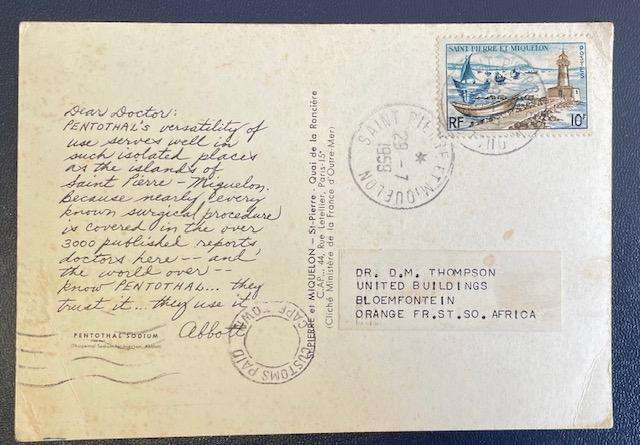 Dear Doctor:
PENTOTHAL'S versatility of
use serves well in
such isolated places
as the islands of
Saint Pierre - Miquelon.
Because nearly every
known surgical procedure
is covered in the over
3000 published reports,
doctors here -- and
the world over --
know PENTOTHAL... they
trust it... they use it
Abbott
PENTOTHAL SODIUM
ST-PIERRE et MIQUELON - St-Pierre - Quai de la Roncière
C.A.P. - 44, Rue Letellier, Paris-15e
(Cliché Ministère de la France d'Outre-Mer)
SAINT PIERRE ET MIQUELON
POSTES
RF
10F
SAINT PIERRE ET MIQUELON
29 - 7
1958
DR. D.M. THOMPSON
UNITED BUILDINGS
BLOEMFONTEIN
ORANGE FR.ST.SO.AFRICA
CUSTOMS PAID